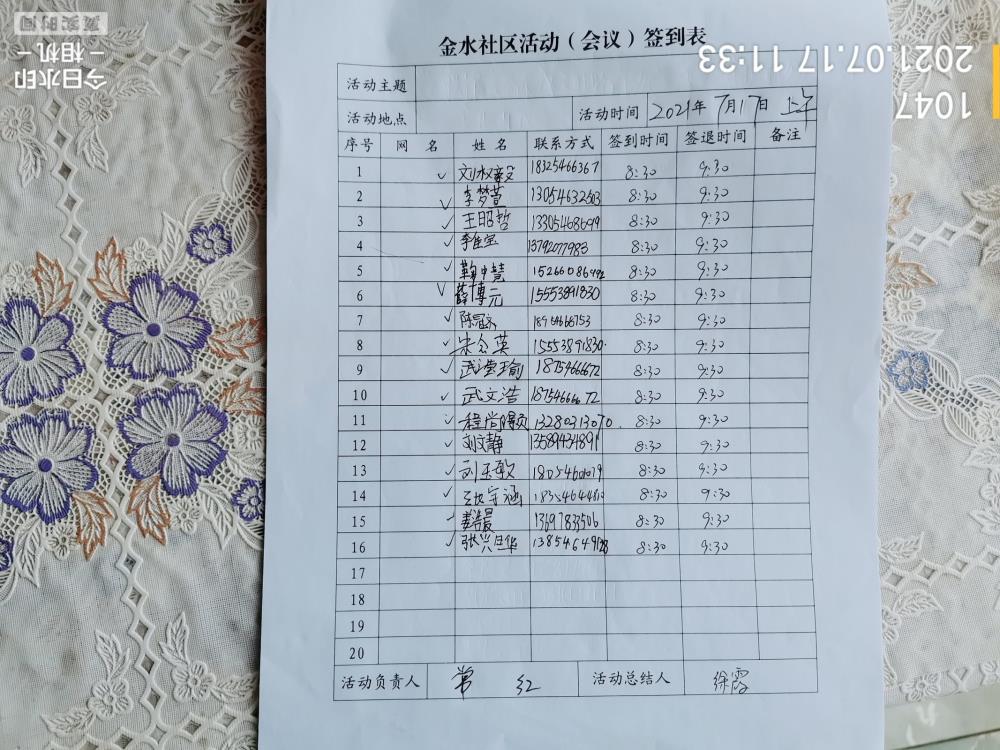 金水社区活动（会议）签到表
活动主题
活动地点 活动时间 2021年 7月17日 上午
序号 网 名 姓 名 联系方式 签到时间 签退时间 备注
1 ✓ 18325466367 8:30 9:30
2 ✓ 李梦萱 13054632503 8:30 9:30
3 ✓ 王昭哲 8:30 9:30
4 ✓ 李佳宝 13792077983 8:30 9:30
5 ✓ 8:30 9:30
6 ✓ 薛博元 15553891830 8:30 9:30
7 ✓ 8:30 9:30
8 ✓ 朱会英 15553891830 8:30 9:30
9 ✓ 18754666672 8:30 9:30
10 ✓ 武文浩 18754666672 8:30 9:30
11 ✓ 13280313070 8:30 9:30
12 ✓ 刘文静 13589434891 8:30 9:30
13 ✓ 刘玉敏 8:30 9:30
14 ✓ 8:30 9:30
15 ✓ 姜浩晨 13697833506 8:30 9:30
16 ✓ 13854649128 8:30 9:30
17
18
19
20
活动负责人 常 红 活动总结人 徐霞
2021.07.17 11:33
1047
今日水印
-相机-
真实时间